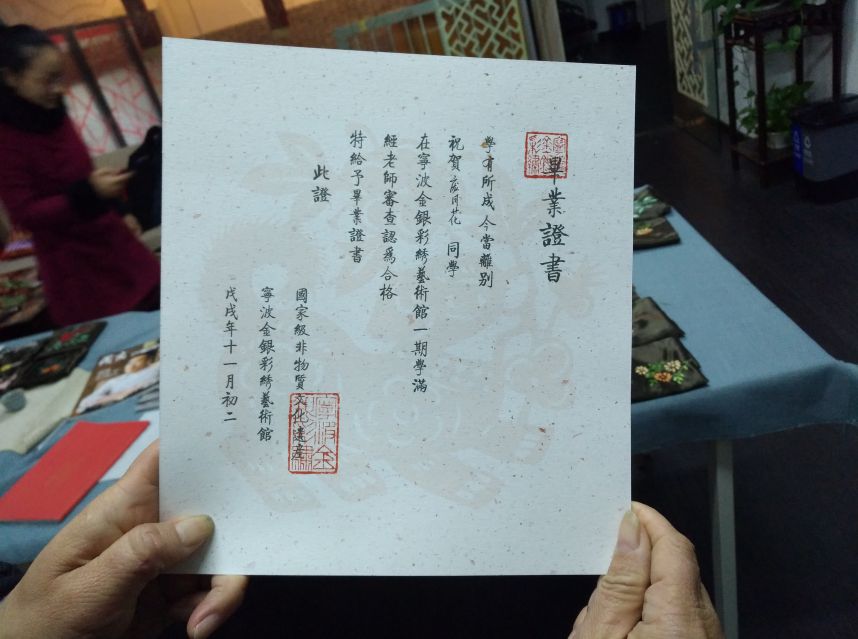 畢業證書
學有所成今當離别
祝賀 同學
在寧波金銀彩綉藝術館一期學滿
經老師審查認爲合格
特給予畢業證書
此證
國家級非物質文化遺産
寧波金銀彩綉藝術館
戊戌年十一月初二